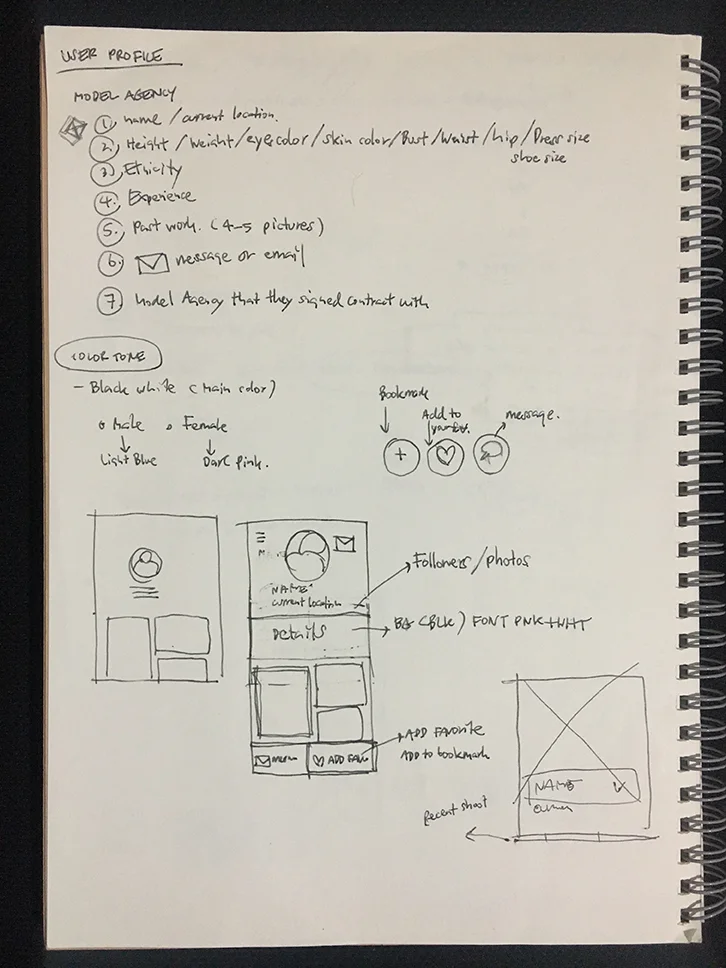 USER PROFILE
MODEL AGENCY
1. name / current location.
2. Height / Weight / eye color / skin color / Bust / Waist / hip / Dress size
shoe size
3. Etnicity
4. Experience
5. Past work. (4-5 pictures)
6. message or email
7. Model Agency that they signed contract with
COLOR TONE
- Black white (Main color)
Male
Female
Light Blue
Dark pink.
Bookmark
Add to
message.
+
NAME
current location
Followers / photos
Details
(BLK) FONT PNK + WHT
ADD FAV
ADD FAVORITE
ADD to bookmark
NAME
Recent shoot